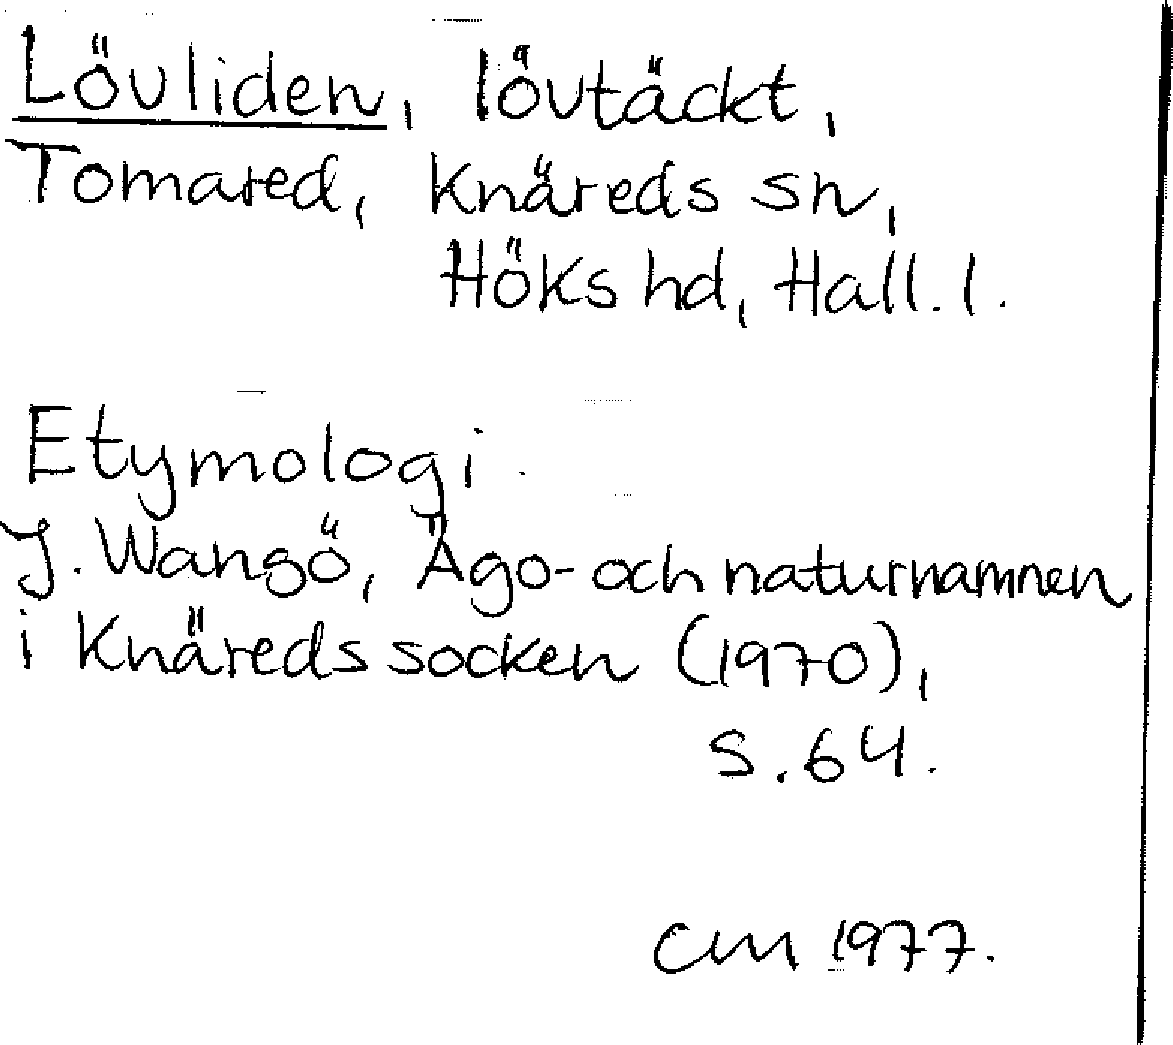 Lövliden, lövtäckt,
Tomared, Knäreds sn,
Höks hd, Hall. l.
Etymologi.
J. Wangö, Ägo- och naturnamnen
i Knäreds socken (1970),
s. 64.
CM 1977.